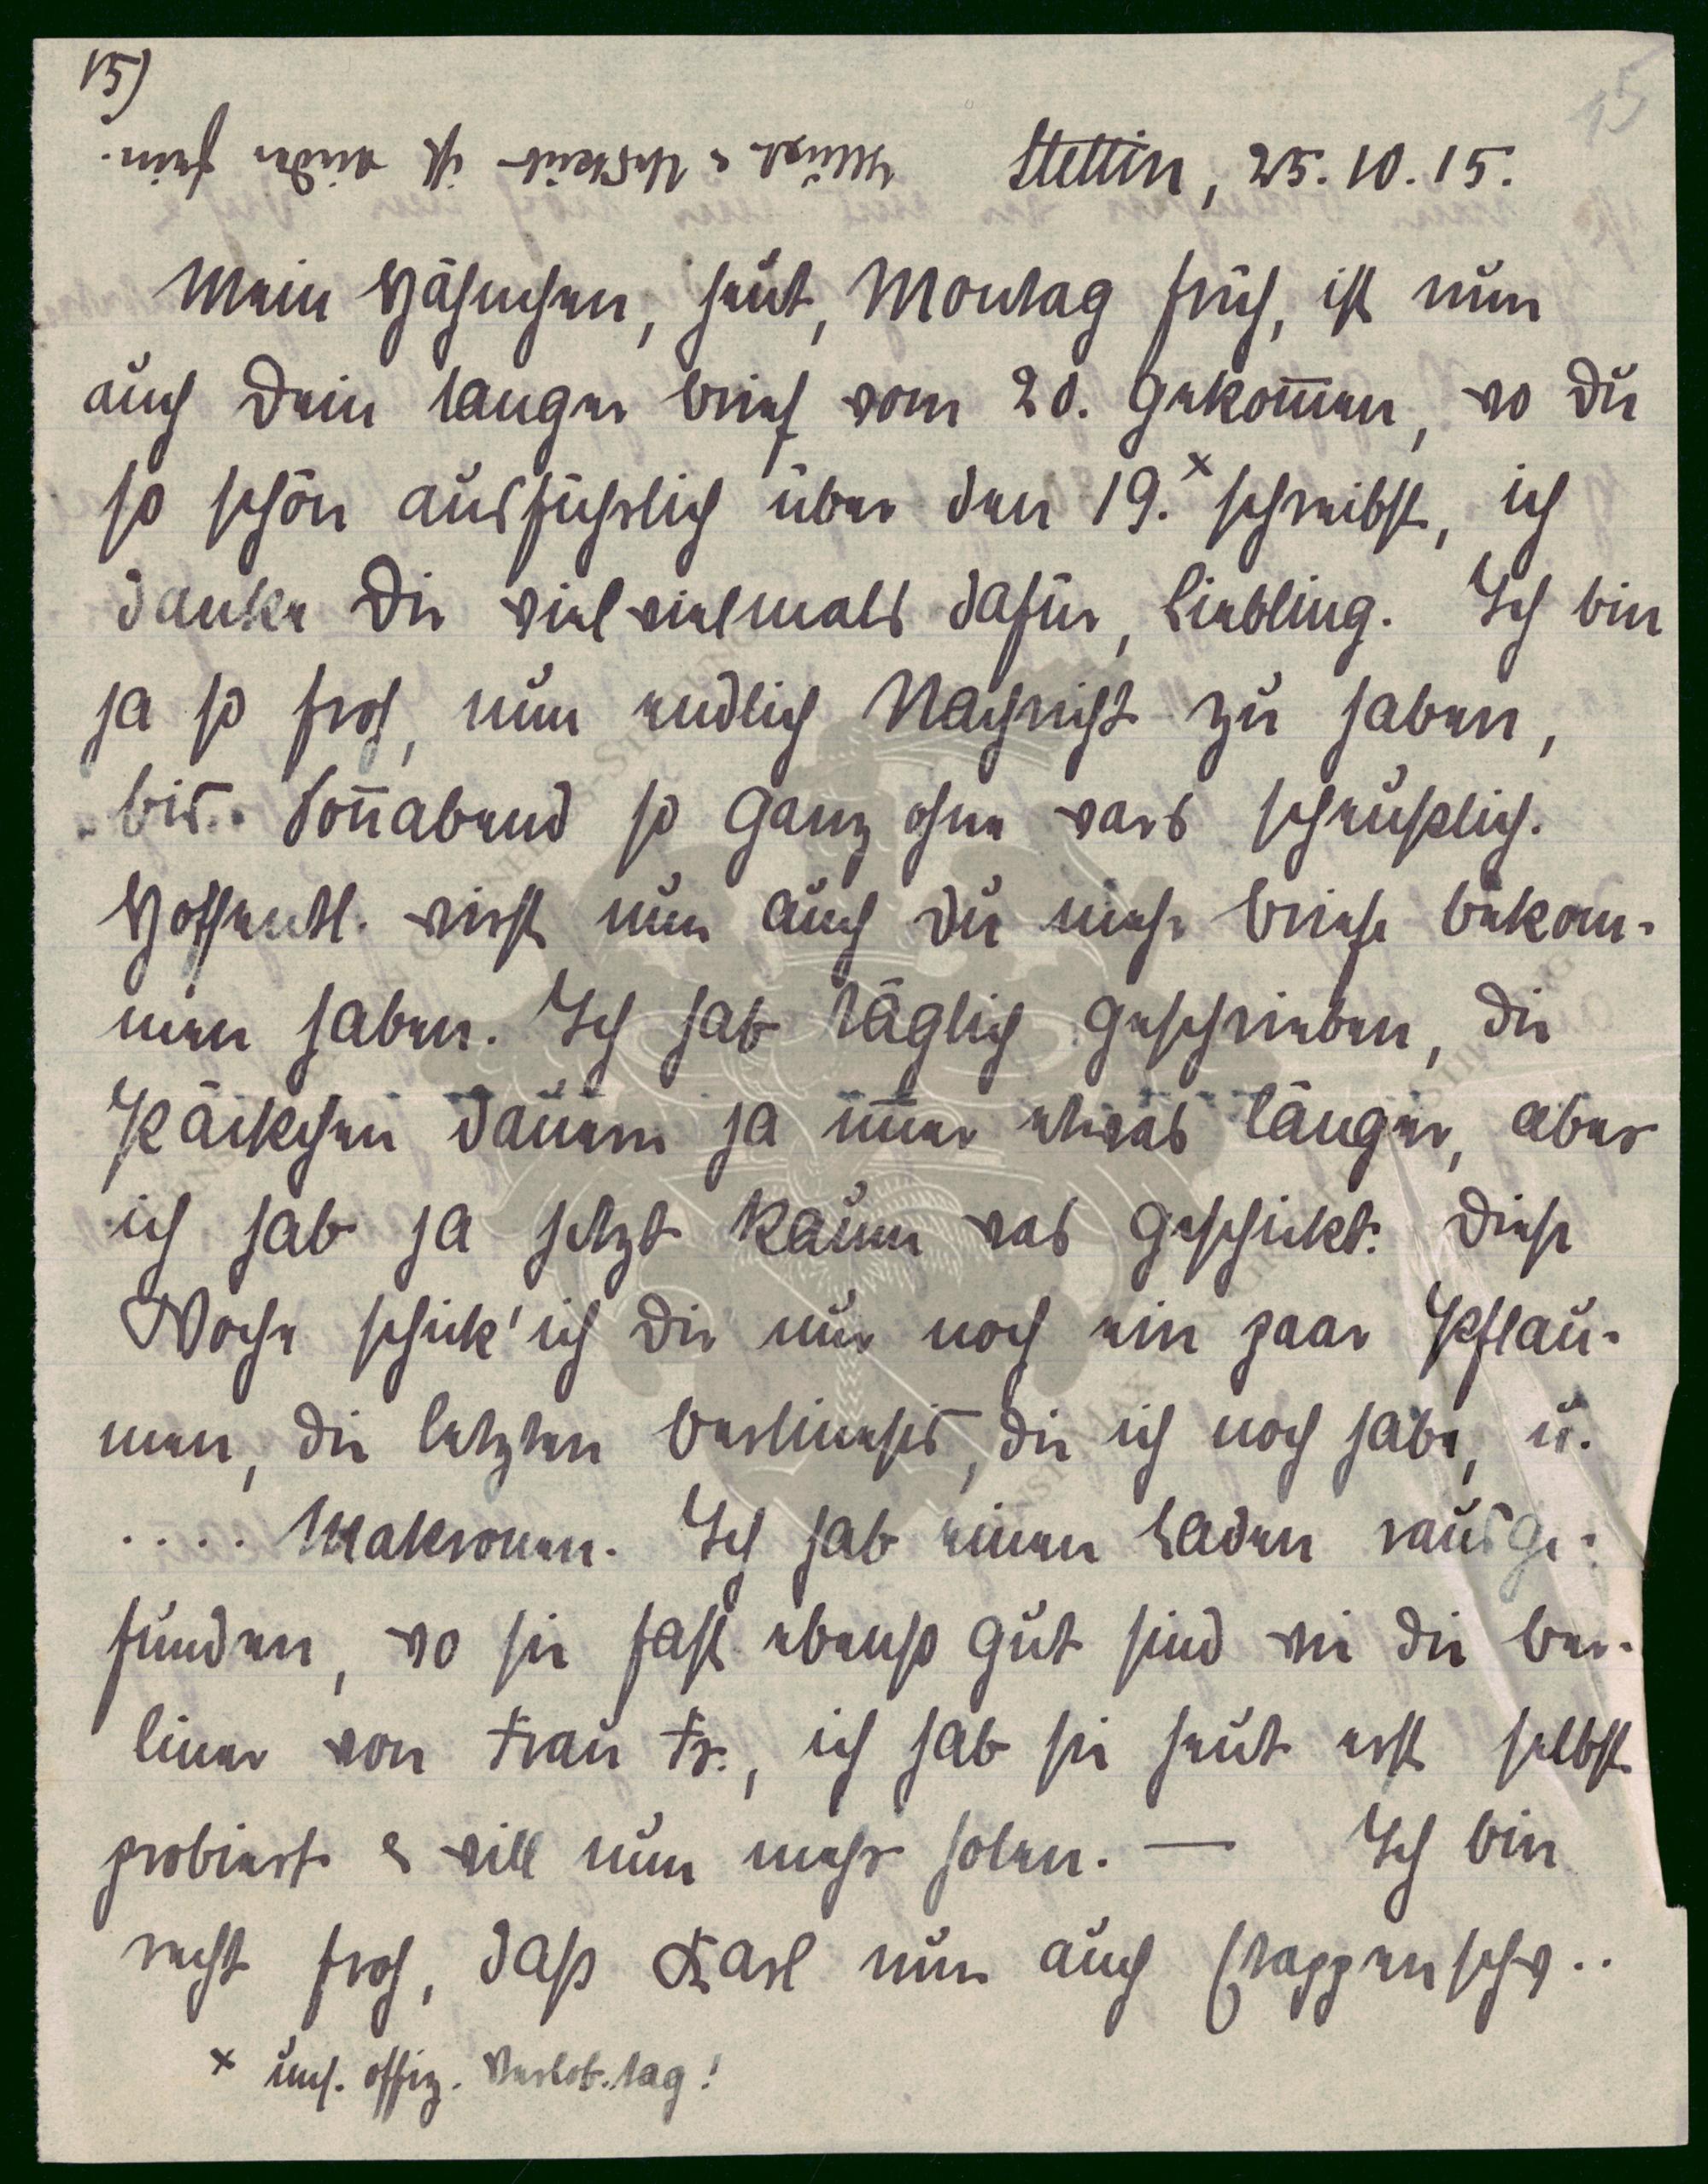 15)
15
Stettin, 25.10.15.
ist wieder fein.
Mein Hähnchen, heut, Montag früh, ist nun
auch Dein langer Brief vom 20. gekommen, wo Du
so schön ausführlich über den 19.x schreibst, ich
danke Dir viel vielmals dafür, Liebling. Ich bin
ja so froh, nun endlich Nachricht zu haben,
bis Sonnabend so ganz ohne wars scheußlich.
Hoffentl. wirst nun auch Du mehr Briefe bekom-
men haben. Ich hab täglich geschrieben, die
Päckchen dauern ja immer etwas länger, aber
ich hab ja jetzt kaum was geschickt. Diese
Woche schick' ich Dir nur noch ein paar Pflau-
men, die letzten Berliner, die ich noch habe, u.
.... Makronen. Ich hab einen Laden rausge-
funden, wo sie fast ebenso gut sind wie die Ber-
liner von Frau Fr., ich hab sie heut erst selbst
probiert & will nun mehr holen. — Ich bin
recht froh, dass Karl nun auch
x uns. offiz. Verlob.tag!